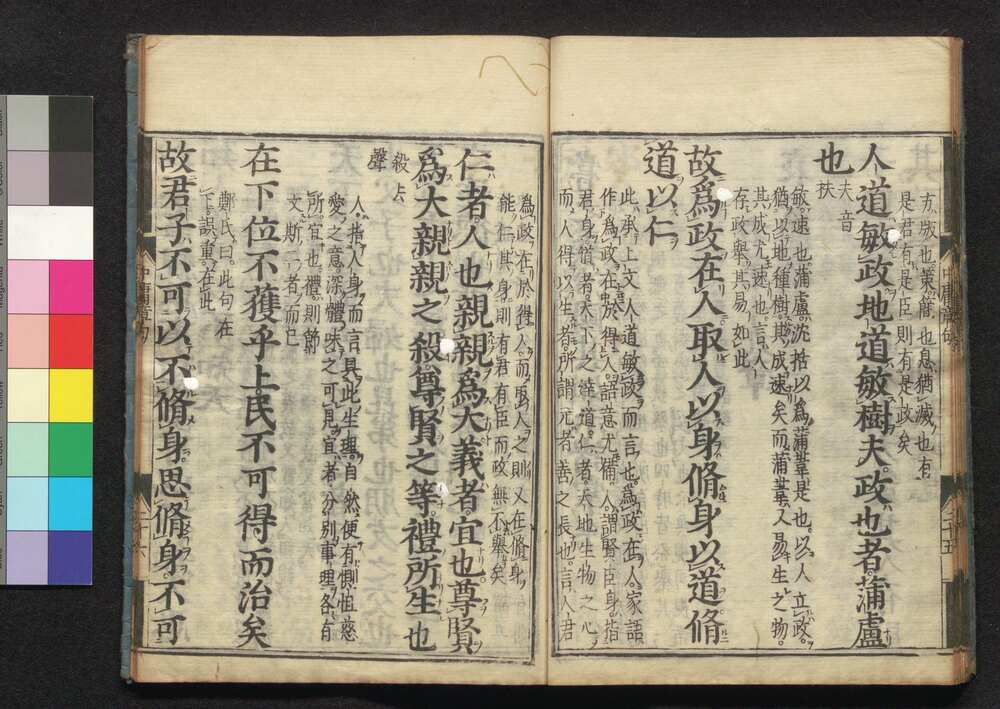 方版也策簡也息猶滅也有
是君有是臣則有是政矣
人道敏政地道敏樹夫政也者蒲盧
也
夫音
扶
敏速也蒲盧沈括以為蒲葦是也以人立政
猶以地種樹其成速矣而蒲葦又易生之物
其成尤速也言人
存政舉其易如此
故爲政在人取人以身脩身以道脩
道以仁
此承上文人道敏政而言也為政在人家語
作為政在於得人語意尤備人謂賢臣身指
君身道者天下之達道仁者天地生物之心
而人得以生者所謂元者善之長也言人君
為政在於得人而取人之則又在脩身
能仁其身則有君有臣而政無不舉矣
仁者人也親親爲大義者宜也尊賢
爲大親親之殺尊賢之等禮所生也
殺去
聲
人指人身而言具此生理自然便有惻怛慈
愛之意深體味之可見宜者分別事理各有
所宜也禮則節
文斯二者而已
在下位不獲乎上民不可得而治矣
鄭氏曰此句在
下誤重在此
故君子不可以不脩身思脩身不可